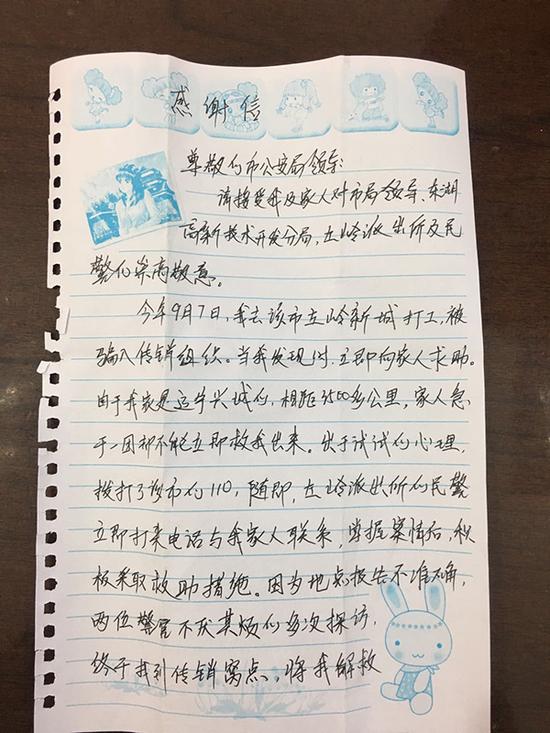 感谢信
尊敬的市公安局领导:
请接受我及家人对市局领导、东湖
高新技术开发分局,左岭派出所及民
警的崇高敬意。
今年9月7日,我去该市左岭新城打工,被
骗入传销组织。当我发现时,立即向家人求助。
由于我家是辽宁兴城的,相距3500多公里,家人急
于一团却不能立即救我出来。出于试试的心理,
拨打了该市的110,随即,左岭派出所的民警
立即打来电话与我家人联系,掌握案情后,积
极采取救助措施。因为地点报告不准确,
两位警官不厌其烦的多次探访,
终于找到传销窝点,将我解救